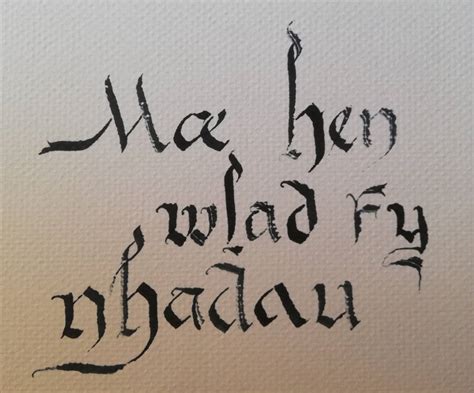 Mæ hen
wlad fy
nhadau